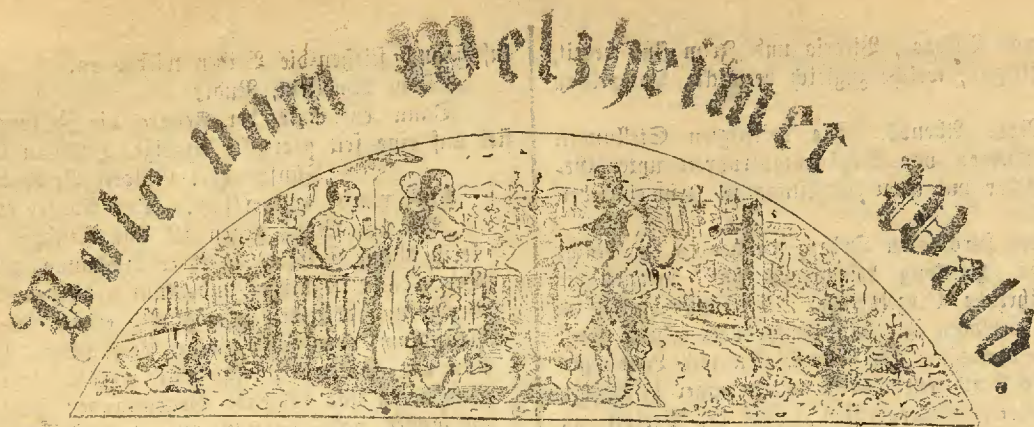 Bote vom Welzheimer Wald.